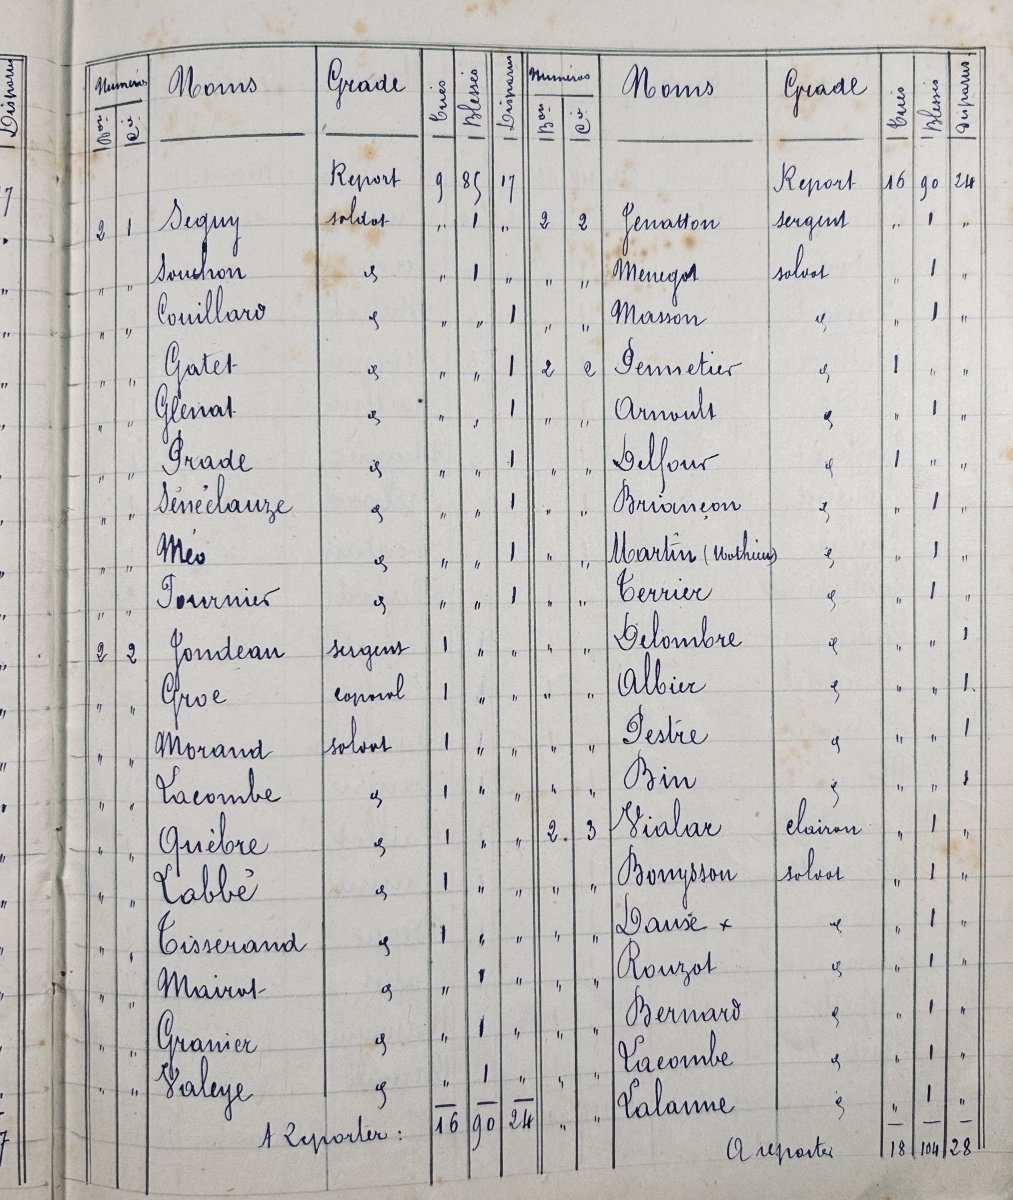 Disparus
Numéros Noms Grade Tués Blessés Disparus
Bon Cie
Report 9 85 17
2 1 Seguy soldat " 1 "
" " Souchon d " 1 "
" " Couillard d " " 1
" " Gatet d " " 1
" " Glénat d " " 1
" " Prade d " " 1
" " Sénéclauze d " " 1
" " Méo d " " 1
" " Fournier d " " 1
2 2 Jondeau sergent 1 " "
" " Groe caporal 1 " "
" " Morand soldat 1 " "
" " Lacombe d 1 " "
" " Quèbre d 1 " "
" " Labbé d 1 " "
" " Tisserand d 1 " "
" " Mairot d " 1 "
" " Granier d " 1 "
" " Valeye d " 1 "
A Reporter : 16 90 24
Numéros Noms Grade Tués Blessés Disparus
Bon Cie
Report 16 90 24
2 2 Jenatton sergent " 1 "
" " Menegot soldat " 1 "
" " Masson d " 1 "
2 2 Pennetier d 1 " "
" " Arnoult d " 1 "
" " Delfour d 1 " "
" " Briançon d " 1 "
" " Martin (Mathieu) d " 1 "
" " Terrier d " 1 "
" " Delombre d " " 1
" " Albier d " " 1
" " Pestre d " " 1
" " Bin d " " 1
2 3 Vialar clairon " 1 "
" " Bouysson soldat " 1 "
" " Dausé x d " 1 "
" " Rouzot d " 1 "
" " Bernard d " 1 "
" " Lacombe d " 1 "
" " Lalanne d " 1 "
A reporter 18 104 28